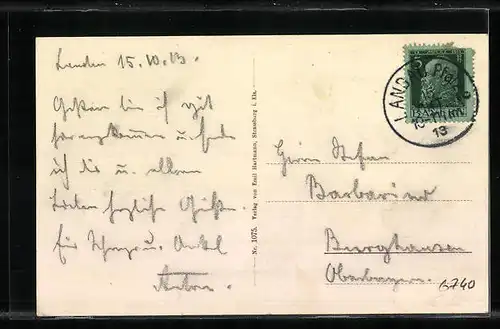 Landau 15.10.13.
Gestern bin ich gut
herangekommen u. sende
ich dir u. allen
Lieben herzliche Grüße.
Onkel
Anton.
Nr. 1075. Verlag von Emil Hartmann, Strassburg i. Els.
5
BAYERN
LANDAU Pfalz
13
Herrn Stefan
Barbarino
Burghausen
Oberbayern.
6740